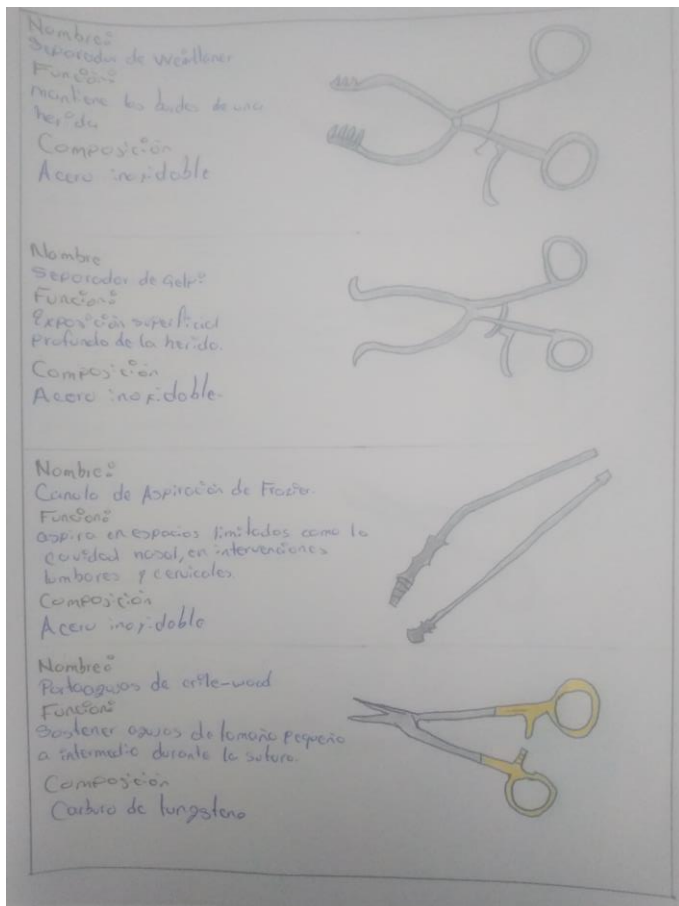 Nombre:
Separador de Weitlaner
Función:
Mantiene los bordes de una
herida
Composición
Acero inoxidable
Nombre
Separador de Gelpi
Función:
Exposición superficial
profundo de la herida.
Composición
Acero inoxidable.
Nombre:
Canula de Aspiración de Frazier.
Función:
aspira en espacios limitados como la
cavidad nasal, en intervenciones
lumbares y cervicales
Composición
Acero inoxidable
Nombre:
Portaagujas de crile-wood
Función:
Sostener agujas de tamaño pequeño
a intermedio durante la sutura.
Composición
Carburo de tungsteno